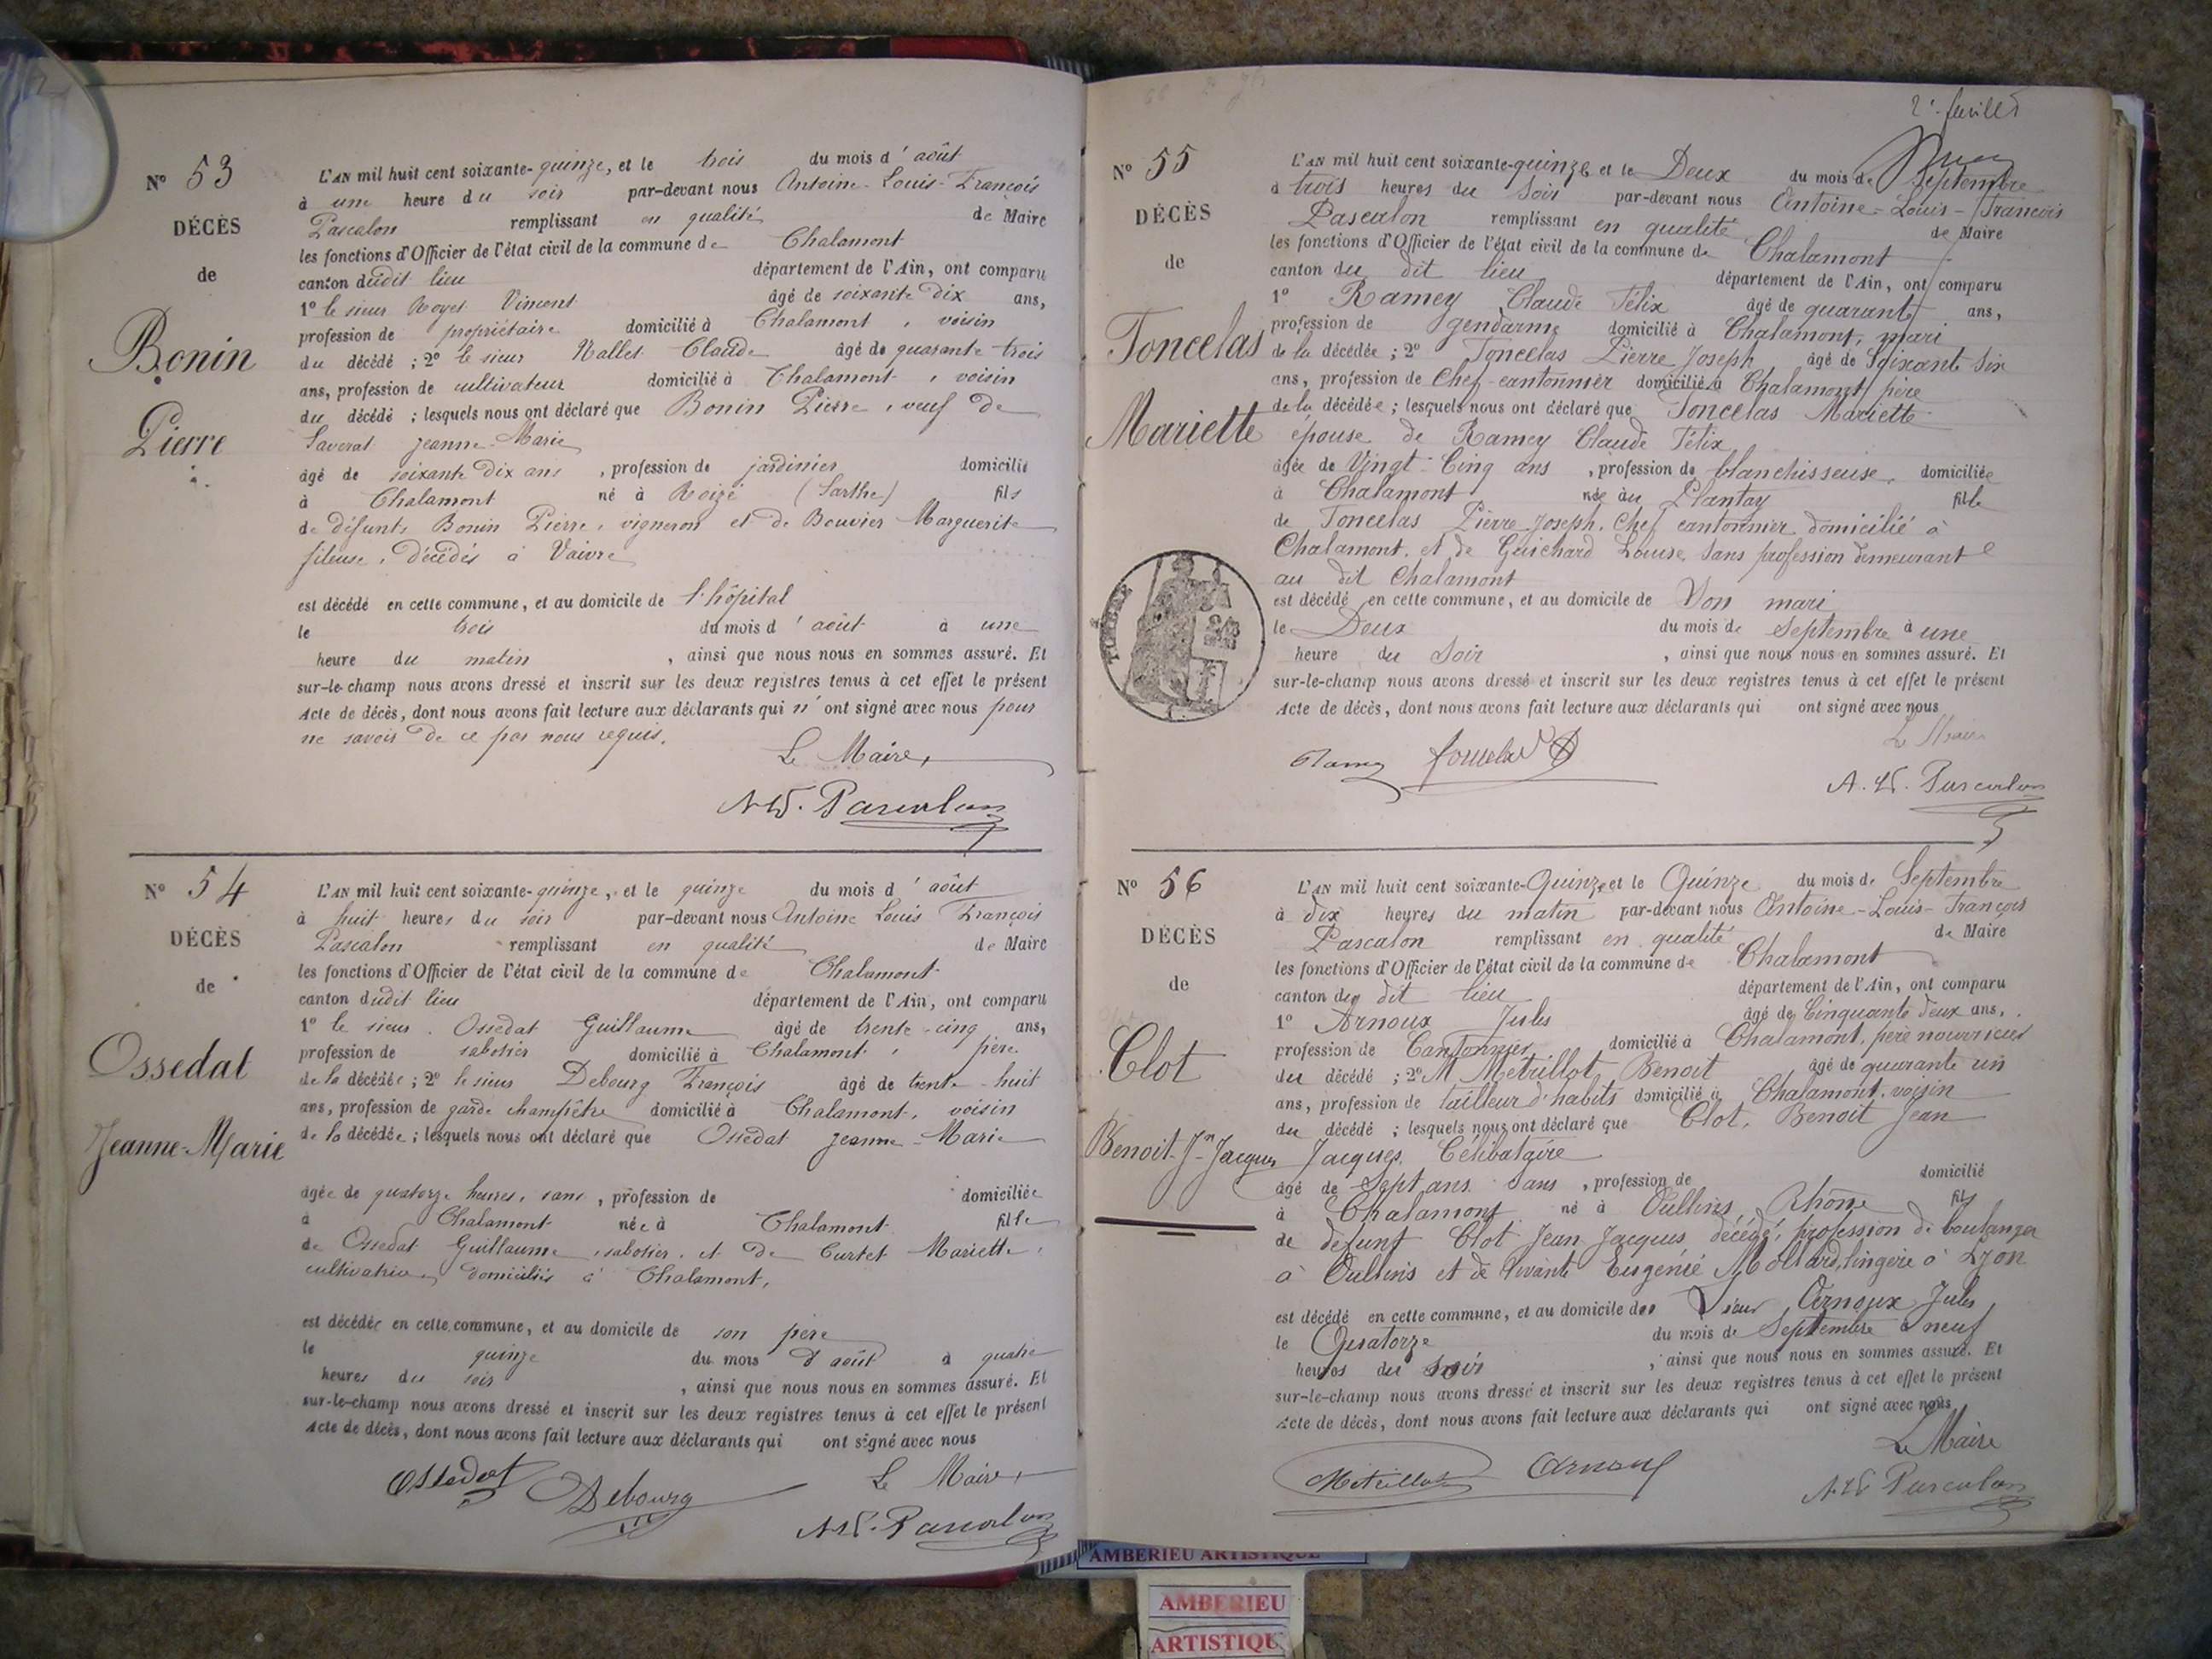 Nº 53
DÉCÈS
de
Bonin
Pierre
L'AN mil huit cent soixante-quinze, et le trois du mois d'août
à une heure du soir par-devant nous Antoine-Louis-François
Pascalon remplissant en qualité de Maire
les fonctions d'Officier de l'état civil de la commune de Chalamont
canton dudit lieu département de l'Ain, ont comparu
1º le sieur Royet Vincent âgé de soixante dix ans,
profession de propriétaire domicilié à Chalamont, voisin
du décédé ; 2º le sieur Nallet Claude âgé de quarante trois
ans, profession de cultivateur domicilié à Chalamont, voisin
du décédé ; lesquels nous ont déclaré que Bonin Pierre, veuf de
Saverat Jeanne-Marie
âgé de soixante dix ans, profession de jardinier domicilié
à Chalamont né à Roizé (Sarthe) fils
de défunts Bonin Pierre, vigneron et de Bouvier Marguerite
fileuse, décédés à Vaivre
est décédé en cette commune, et au domicile de l'hôpital
le trois du mois d'août à une
heure du matin, ainsi que nous nous en sommes assuré. Et
sur-le-champ nous avons dressé et inscrit sur les deux registres tenus à cet effet le présent
Acte de décès, dont nous avons fait lecture aux déclarants qui n'ont signé avec nous pour
ne savoir de ce par nous requis.
Le Maire,
A. L. F. Pascalon
Nº 54
DÉCÈS
de
Ossedat
Jeanne-Marie
L'AN mil huit cent soixante-quinze, et le quinze du mois d'août
à huit heures du soir par-devant nous Antoine Louis François
Pascalon remplissant en qualité de Maire
les fonctions d'Officier de l'état civil de la commune de Chalamont
canton dudit lieu département de l'Ain, ont comparu
1º le sieur Ossedat Guillaume âgé de trente-cinq ans,
profession de sabotier domicilié à Chalamont, père
de la décédée ; 2º le sieur Debourg François âgé de trente-huit
ans, profession de garde champêtre domicilié à Chalamont, voisin
de la décédée ; lesquels nous ont déclaré que Ossedat Jeanne-Marie
âgée de quatorze heures, sans, profession de domiciliée
à Chalamont née à Chalamont fille
de Ossedat Guillaume, sabotier, et de Curtet Mariette,
cultivatrice, domiciliés à Chalamont,
est décédée en cette commune, et au domicile de son père
le quinze du mois d'août à quatre
heures du soir, ainsi que nous nous en sommes assuré. Et
sur-le-champ nous avons dressé et inscrit sur les deux registres tenus à cet effet le présent
Acte de décès, dont nous avons fait lecture aux déclarants qui ont signé avec nous
Le Maire,
Ossedat Debourg
A. L. F. Pascalon
2e feuillet
Nº 55
DÉCÈS
de
Toncelas
Mariette
L'AN mil huit cent soixante-quinze et le Deux du mois de Septembre
à trois heures du Soir par-devant nous Antoine-Louis-François
Pascalon remplissant en qualité de Maire
les fonctions d'Officier de l'état civil de la commune de Chalamont
canton du dit lieu département de l'Ain, ont comparu
1º Ramey Claude Félix âgé de quarante ans,
profession de gendarme domicilié à Chalamont, mari
de la décédée ; 2º Toncelas Pierre Joseph âgé de Soixante Six
ans, profession de Chef-cantonnier domicilié à Chalamont père
de la décédée ; lesquels nous ont déclaré que Toncelas Mariette
épouse de Ramey Claude Félix
âgée de Vingt-Cinq ans, profession de blanchisseuse, domiciliée
à Chalamont née au Plantay fille
de Toncelas Pierre Joseph, Chef cantonnier domicilié à
Chalamont, et de Guichard Louise, Sans profession demeurant
au dit Chalamont
est décédé en cette commune, et au domicile de Son mari
le Deux du mois de Septembre à une
heure du Soir, ainsi que nous nous en sommes assuré. Et
sur-le-champ nous avons dressé et inscrit sur les deux registres tenus à cet effet le présent
Acte de décès, dont nous avons fait lecture aux déclarants qui ont signé avec nous
Le Maire
Ramey Toncelas
A. L. F. Pascalon
Nº 56
DÉCÈS
de
Clot
Benoit-Jn-Jacques
L'AN mil huit cent soixante-Quinze et le Quinze du mois de Septembre
à dix heures du matin par-devant nous Antoine-Louis-François
Pascalon remplissant en qualité de Maire
les fonctions d'Officier de l'état civil de la commune de Chalamont
canton du dit lieu département de l'Ain, ont comparu
1º Arnoux Jules âgé de Cinquante deux ans,
profession de Cantonnier domicilié à Chalamont, père nourricier
du décédé ; 2º M Metrillot Benoit âgé de quarante un
ans, profession de tailleur d'habits domicilié à Chalamont, voisin
du décédé ; lesquels nous ont déclaré que Clot, Benoit Jean
Jacques, Célibataire
âgé de Sept ans Sans, profession de domicilié
à Chalamont né à Oullins, Rhône fils
de défunt Clot Jean Jacques décédé, profession de boulanger
à Oullins et de vivante Eugénie Mollard, lingère à Lyon
est décédé en cette commune, et au domicile de Sieur Arnoux Jules
le Quatorze du mois de Septembre à neuf
heures du Soir, ainsi que nous nous en sommes assuré. Et
sur-le-champ nous avons dressé et inscrit sur les deux registres tenus à cet effet le présent
Acte de décès, dont nous avons fait lecture aux déclarants qui ont signé avec nous
Le Maire
Métrillot Arnoux
A. L. F. Pascalon
AMBERIEU ARTISTIQUE
AMBERIEU
ARTISTIQU